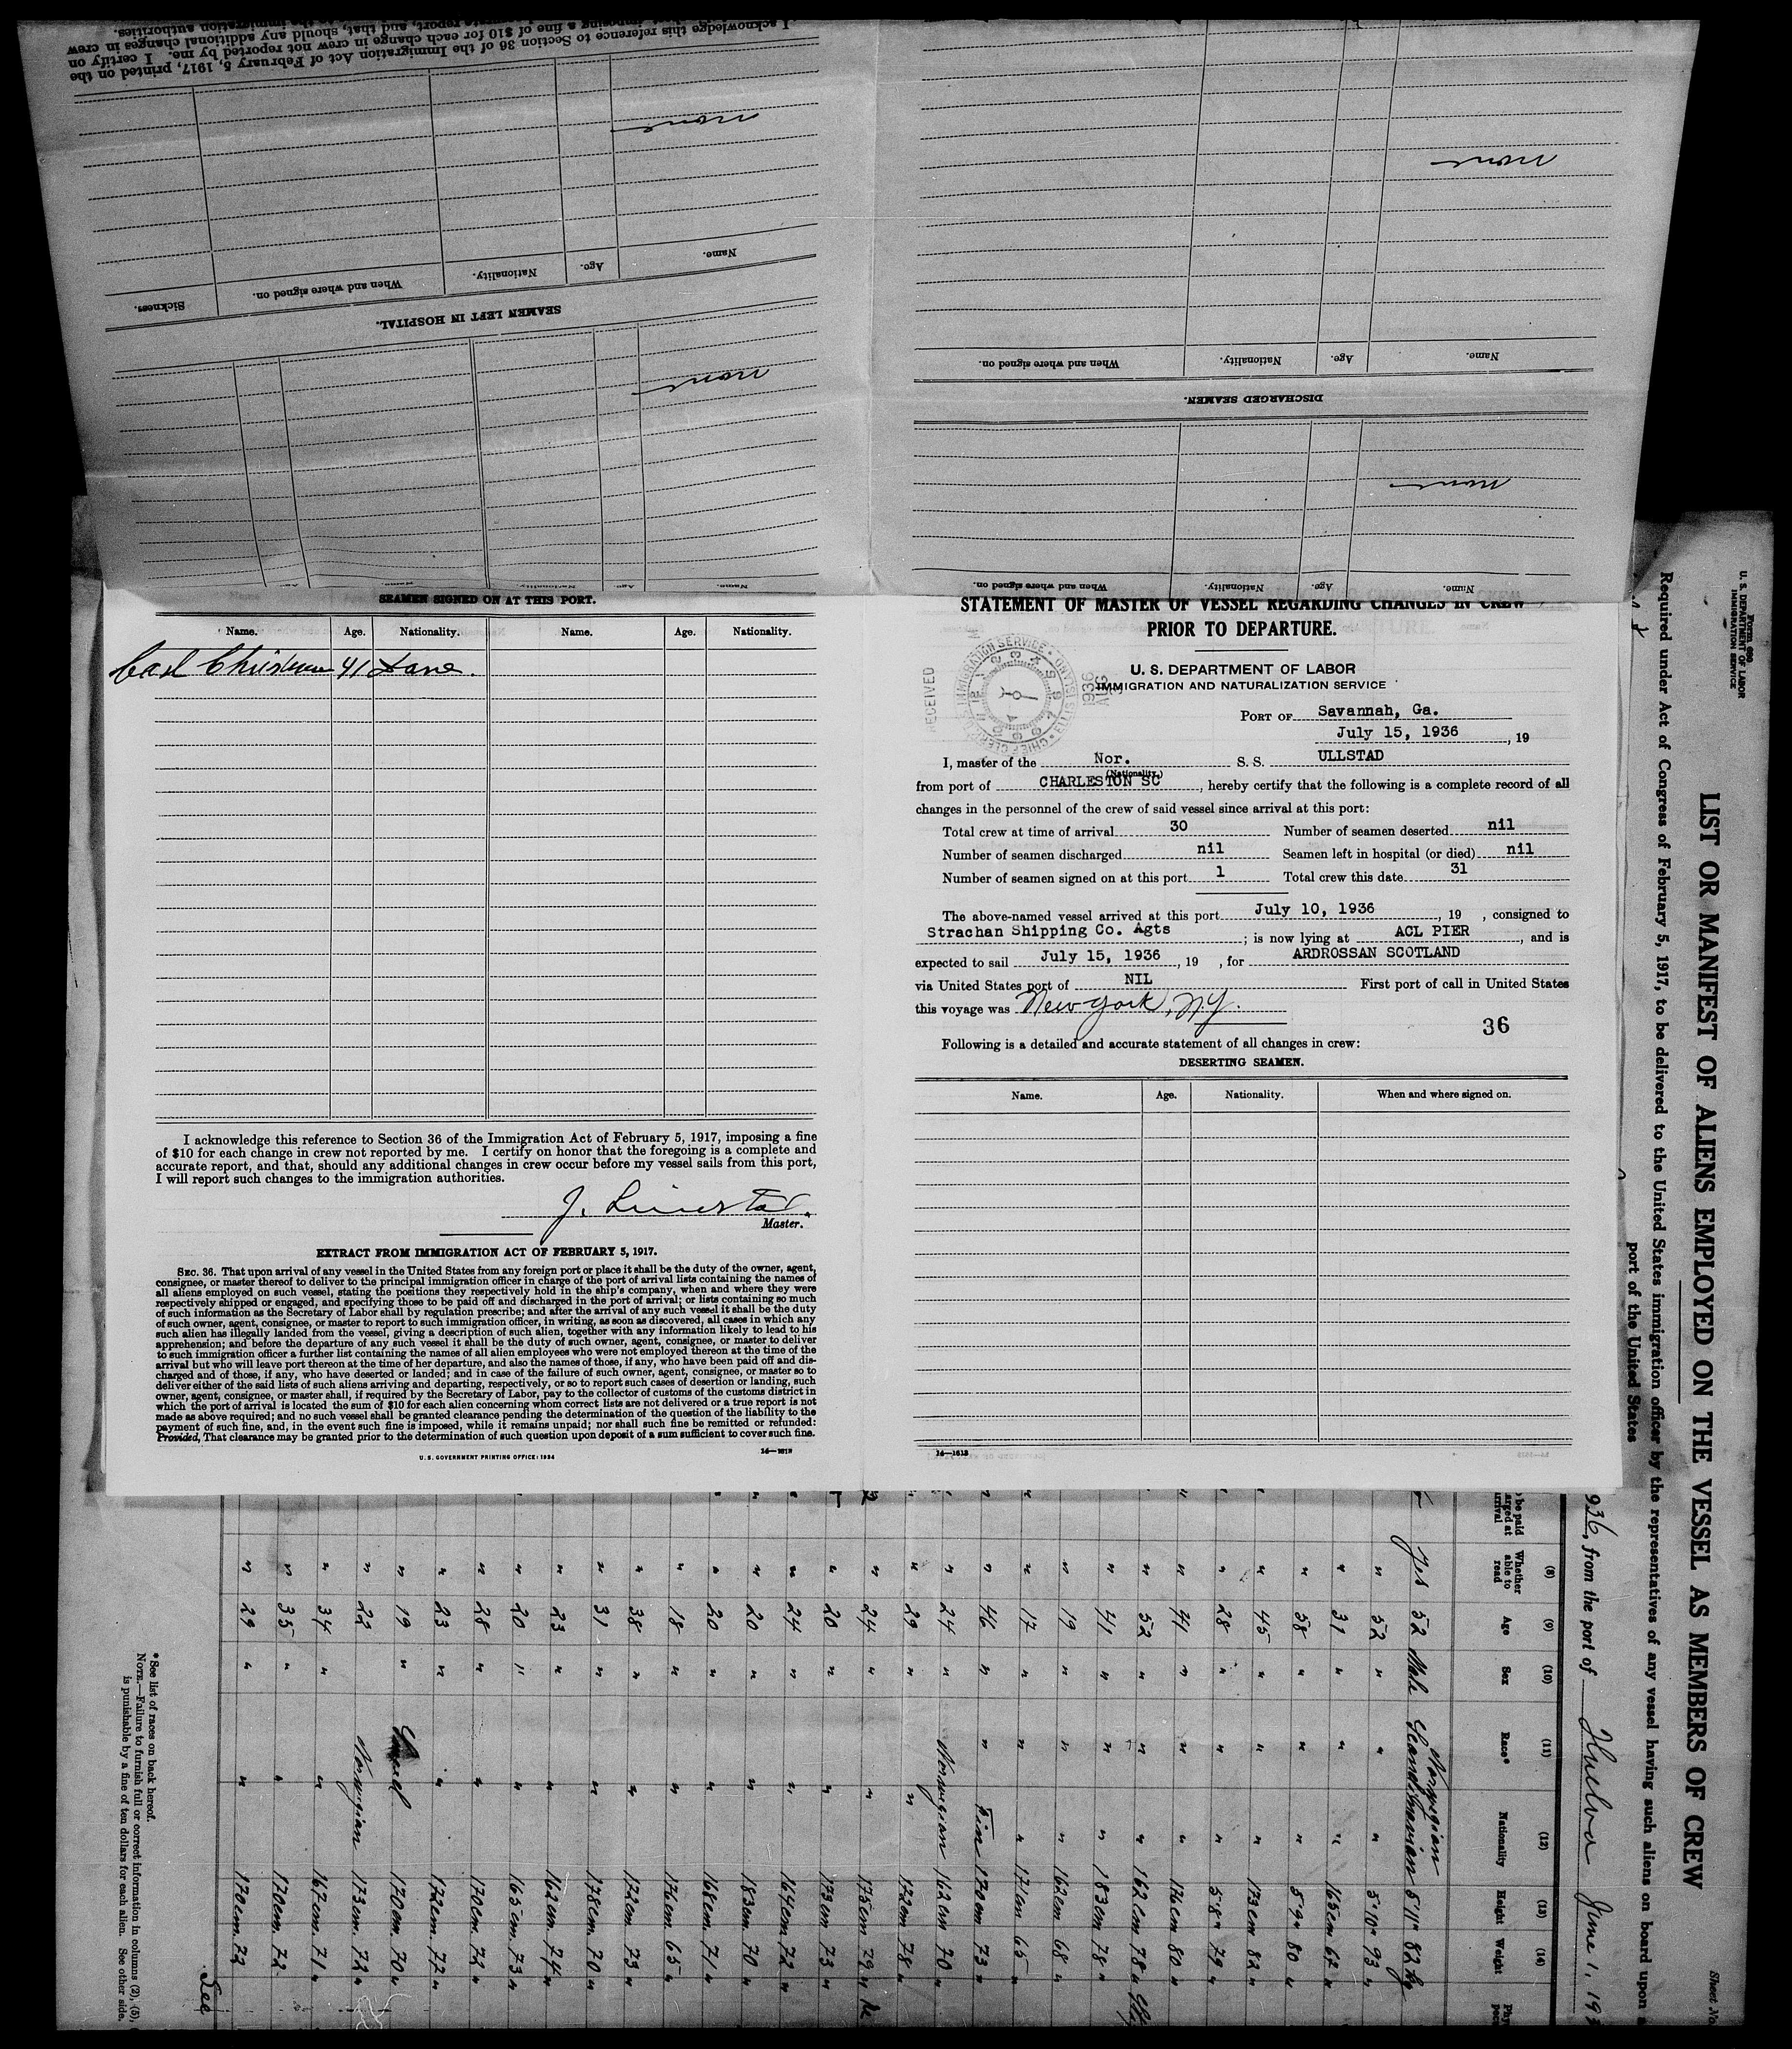 I acknowledge this reference to Section 36 of the Immigration Act of February 5, 1917, printed on the
imposing a fine of $10 for each change in crew not reported by me. I certify on
report, and that, should any additional changes in crew
immigration authorities.
none
Name. Age. Nationality. When and where signed on. Sickness.
SEAMEN LEFT IN HOSPITAL.
none
none
Name. Age. Nationality. When and where signed on.
DISCHARGED SEAMEN.
none
Name. Age. Nationality. When and where signed on.
SEAMEN SIGNED ON AT THIS PORT.
Name. Age. Nationality. Name. Age. Nationality.
Carl Christensen 41 Dane.
I acknowledge this reference to Section 36 of the Immigration Act of February 5, 1917, imposing a fine
of $10 for each change in crew not reported by me. I certify on honor that the foregoing is a complete and
accurate report, and that, should any additional changes in crew occur before my vessel sails from this port,
I will report such changes to the immigration authorities.
J.
Master.
EXTRACT FROM IMMIGRATION ACT OF FEBRUARY 5, 1917.
SEC. 36. That upon arrival of any vessel in the United States from any foreign port or place it shall be the duty of the owner, agent,
consignee, or master thereof to deliver to the principal immigration officer in charge of the port of arrival lists containing the names of
all aliens employed on such vessel, stating the positions they respectively hold in the ship's company, when and where they were
respectively shipped or engaged, and specifying those to be paid off and discharged in the port of arrival; or lists containing so much
of such information as the Secretary of Labor shall by regulation prescribe; and after the arrival of any such vessel it shall be the duty
of such owner, agent, consignee, or master to report to such immigration officer, in writing, as soon as discovered, all cases in which any
such alien has illegally landed from the vessel, giving a description of such alien, together with any information likely to lead to his
apprehension; and before the departure of any such vessel it shall be the duty of such owner, agent, consignee, or master to deliver
to such immigration officer a further list containing the names of all alien employees who were not employed thereon at the time of the
arrival but who will leave port thereon at the time of her departure, and also the names of those, if any, who have been paid off and dis-
charged and of those, if any, who have deserted or landed; and in case of the failure of such owner, agent, consignee, or master so to
deliver either of the said lists of such aliens arriving and departing, respectively, or so to report such cases of desertion or landing, such
owner, agent, consignee, or master shall, if required by the Secretary of Labor, pay to the collector of customs of the customs district in
which the port of arrival is located the sum of $10 for each alien concerning whom correct lists are not delivered or a true report is not
made as above required; and no such vessel shall be granted clearance pending the determination of the question of the liability to the
payment of such fine, and, in the event such fine is imposed, while it remains unpaid; nor shall such fine be remitted or refunded:
Provided, That clearance may be granted prior to the determination of such question upon deposit of a sum sufficient to cover such fine.
U. S. GOVERNMENT PRINTING OFFICE: 1934 14—1613
STATEMENT OF MASTER OF VESSEL REGARDING CHANGES IN CREW
PRIOR TO DEPARTURE.
U. S. DEPARTMENT OF LABOR
IMMIGRATION AND NATURALIZATION SERVICE
RECEIVED
IMMIGRATION SERVICE • ELLIS ISLAND • CHIEF CLERK
1936 AUG
PORT OF Savannah, Ga.
July 15, 1936, 19
I, master of the Nor. S. S. ULLSTAD
(Nationality)
from port of CHARLESTON SC, hereby certify that the following is a complete record of all
changes in the personnel of the crew of said vessel since arrival at this port:
Total crew at time of arrival 30 Number of seamen deserted nil
Number of seamen discharged nil Seamen left in hospital (or died) nil
Number of seamen signed on at this port 1 Total crew this date 31
The above-named vessel arrived at this port July 10, 1936, 19 , consigned to
Strachan Shipping Co. Agts ; is now lying at ACL PIER, and is
expected to sail July 15, 1936, 19 , for ARDROSSAN SCOTLAND
via United States port of NIL First port of call in United States
this voyage was New York, NY.
36
Following is a detailed and accurate statement of all changes in crew:
DESERTING SEAMEN.
Name. Age. Nationality. When and where signed on.
14—1613
Form 689
U. S. DEPARTMENT OF LABOR
IMMIGRATION SERVICE
Sheet No.
LIST OR MANIFEST OF ALIENS EMPLOYED ON THE VESSEL AS MEMBERS OF CREW
Required under Act of Congress of February 5, 1917, to be delivered to the United States immigration officer by the representatives of any vessel having such aliens on board upon
port of the United States
936, from the port of Huelva June 1, 193
(8) (9) (10) (11) (12) (13) (14)
Whether able to read Age Sex Race* Nationality Height Weight
Norwegian
Yes 52 Male Scandinavian 5'11" 82 kg
" 52 " " " 5'10" 93 "
" 31 " " " 165cm 62 "
" 58 " " " 5'9" 80 "
" 45 " " " 173cm 82 "
" 28 " " " 5'8" 79 "
" 41 " " " 176cm 80 "
" 52 " " " 162cm 78 "
" 41 " " " 183cm 78 "
" 19 " " " 162cm 68 "
" 17 " " " 171cm 65 "
" 46 " " Finn 170cm 73 "
" 24 " Norwegian 162cm 70 "
" 29 " " 172cm 78 "
" 24 " " 175cm 79 "
" 20 " " 173cm 73 "
" 24 " " 164cm 72 "
" 20 " " 183cm 70 "
" 20 " " 168cm 71 "
" 18 " " 176cm 65 "
" 38 " " 172cm 73 "
" 31 " " 178cm 70 "
" 23 " " 162cm 74 "
" 20 " " 165cm 73 "
" 28 " " 170cm 72 "
" 23 " " 172cm 72 "
" 19 " 170cm 70 "
" 22 Norwegian 173cm 72 "
" 34 " " 167cm 71 "
" 35 " " 170cm 72
" 29 " " 170cm 72
*See list of races on back hereof.
NOTE.—Failure to furnish full or correct information in columns (2), (5),
is punishable by a fine of ten dollars for each alien. See other side.
See